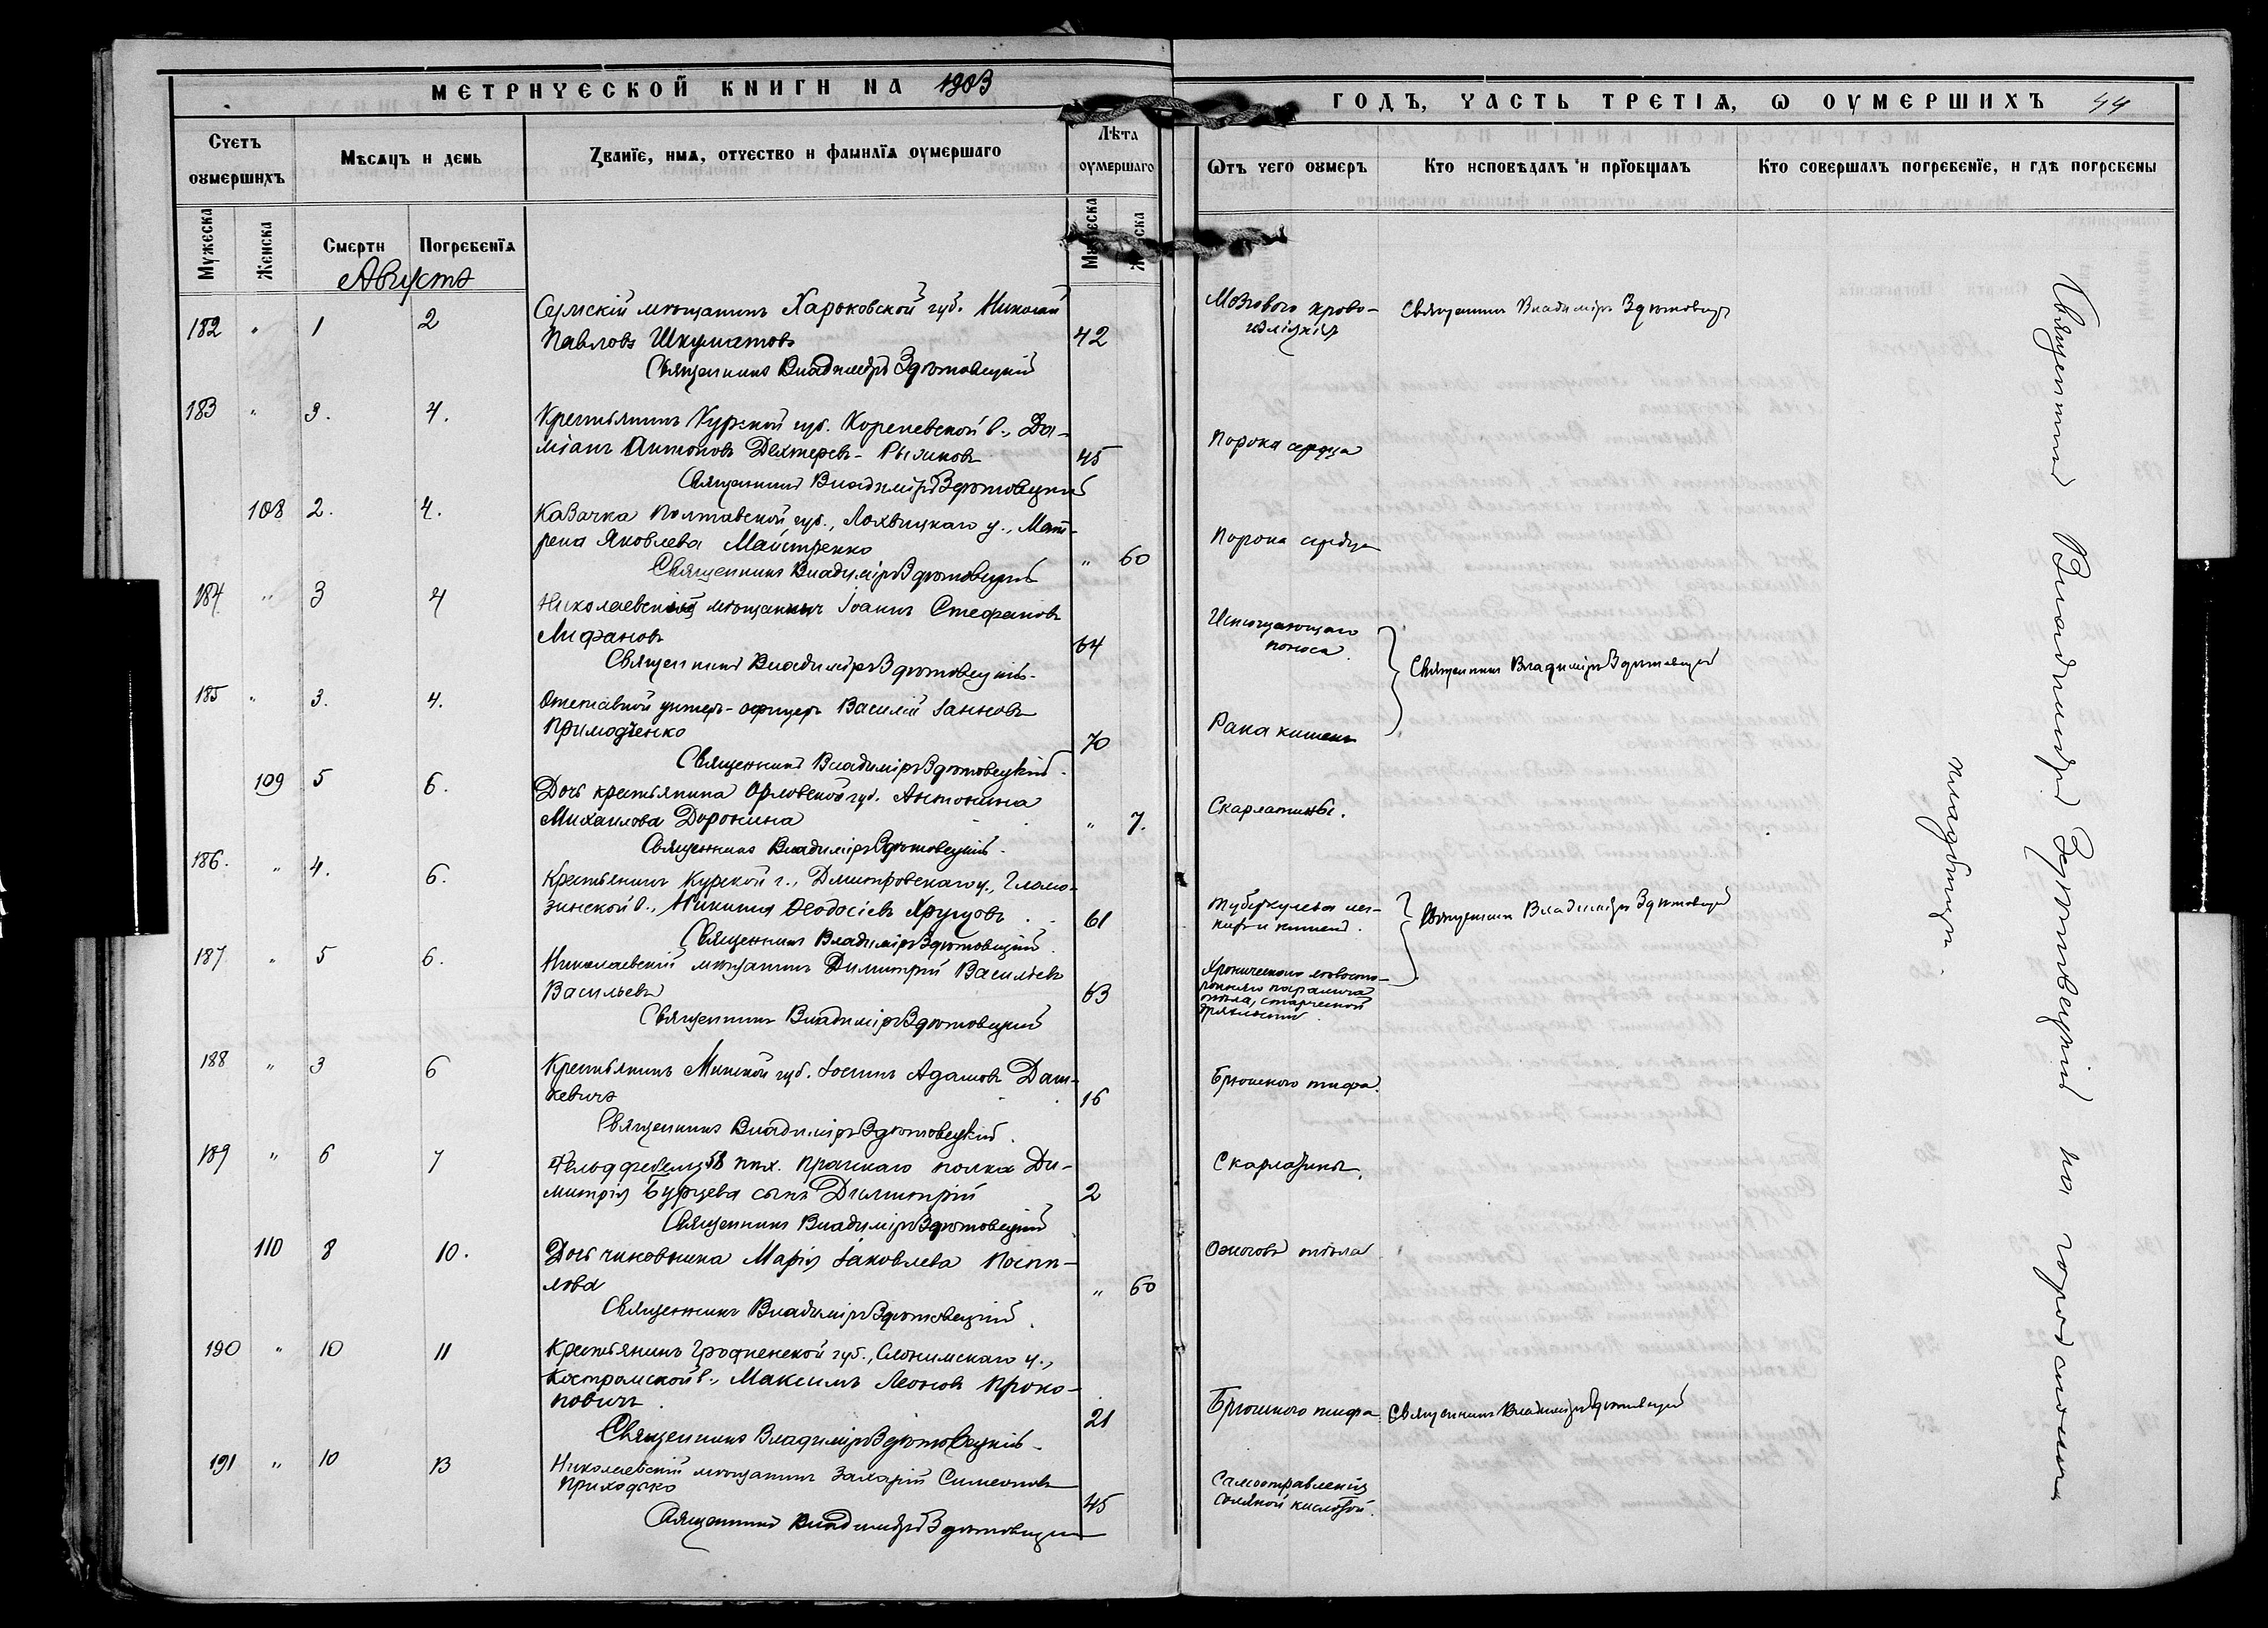 МЕТРИЧЕСКОЙ КНИГИ НА 1903
ГОДЪ, ЧАСТЬ ТРЕТІЯ, Ѡ ОУМЕРШИХЪ 44
Счетъ оумершихъ
Мѣсяцъ и день
Званїе, имя, отчество и фамилїя оумершаго
Лѣта оумершаго
Ѿтъ чего оумеръ
Кто исповѣдалъ и прїобщалъ
Кто совершалъ погребенїе, и гдѣ погребены
Мужеска
Женска
Смерти
Погребенїя
Августъ
182 " 1 2
Сумскій мѣщанинъ Харьковской губ. Николай
Павловъ Шкуматовъ 42
Священникъ Владиміръ Здѣтовецкій
Мозгового крово-
изліянія
Священникъ Владиміръ Здѣтовецкій
183 " 3. 4.
Крестьянинъ Курской губ. Кореневской в., Да-
міанъ Антоновъ Дехтеревъ - Рыляковъ 45
Священникъ Владиміръ Здѣтовецкій
Порока сердца
108 2. 4.
Казачка Полтавской губ., Лохвицкаго у., Мат-
рена Яковлева Майстренко " 60
Священникъ Владиміръ Здѣтовецкій
Порока сердца
184 " 3 4
Николаевскій мѣщанинъ Іоаннъ Стефановъ
Лифановъ 64
Священникъ Владиміръ Здѣтовецкій
Истощающаго
поноса
Священникъ Владиміръ Здѣтовецкій
185 " 3. 4.
Отставной унтеръ-офицеръ Василій Іанновъ
Примодченко 70
Священникъ Владиміръ Здѣтовецкій.
Рака кишекъ
109 5 6.
Дочь крестьянина Орловской губ. Антонина
Михаилова Доронина " 7.
Священникъ Владиміръ Здѣтовецкій.
Скарлатины.
186. " 4. 6.
Крестьянинъ Курской г., Дмитровскаго у., Гламо-
зинской в., Никита Ѳеодосіевъ Хрущовъ 61
Священникъ Владиміръ Здѣтовецкій.
Туберкулеза лег-
кихъ и кишекъ.
Священникъ Владиміръ Здѣтовецкій
187 " 5 6.
Николаевскій мѣщанинъ Димитрій Васильевъ
Васильевъ 63
Священникъ Владиміръ Здѣтовецкій
Хроническаго лѣвосто-
ронняго паралича
тѣла, старческой
дряхлости.
188 " 3 6
Крестьянинъ Минской губ. Іосифъ Адамовъ Даш-
кевичъ 16
Священникъ Владиміръ Здѣтовецкій.
Брюшного тифа.
189 " 6 7
Фельдфебеля 58 пѣх. Прагскаго полка Ди-
митрія Бурцева сынъ Димитрій 2
Священникъ Владиміръ Здѣтовецкій
Скарлатины.
110 8 10.
Дочь чиновника Марія Іаковлева Поспѣ-
лова " 60
Священникъ Владиміръ Здѣтовецкій.
Ожоговъ тѣла
190 " 10 11
Крестьянинъ Гродненской губ., Слонимскаго у.,
Костромской в., Максимъ Леоновъ Проко-
повичъ. 21
Священникъ Владиміръ Здѣтовецкій.
Брюшного тифа.
Священникъ Владиміръ Здѣтовецкій
191 " 10 13
Николаевскій мѣщанинъ Захарій Симеоновъ
Приходько 45
Священникъ Владиміръ Здѣтовецкій
Самоотравленія
соляной кислотой.
Священникъ Владиміръ Здѣтовецкій на городскомъ
кладбищѣ